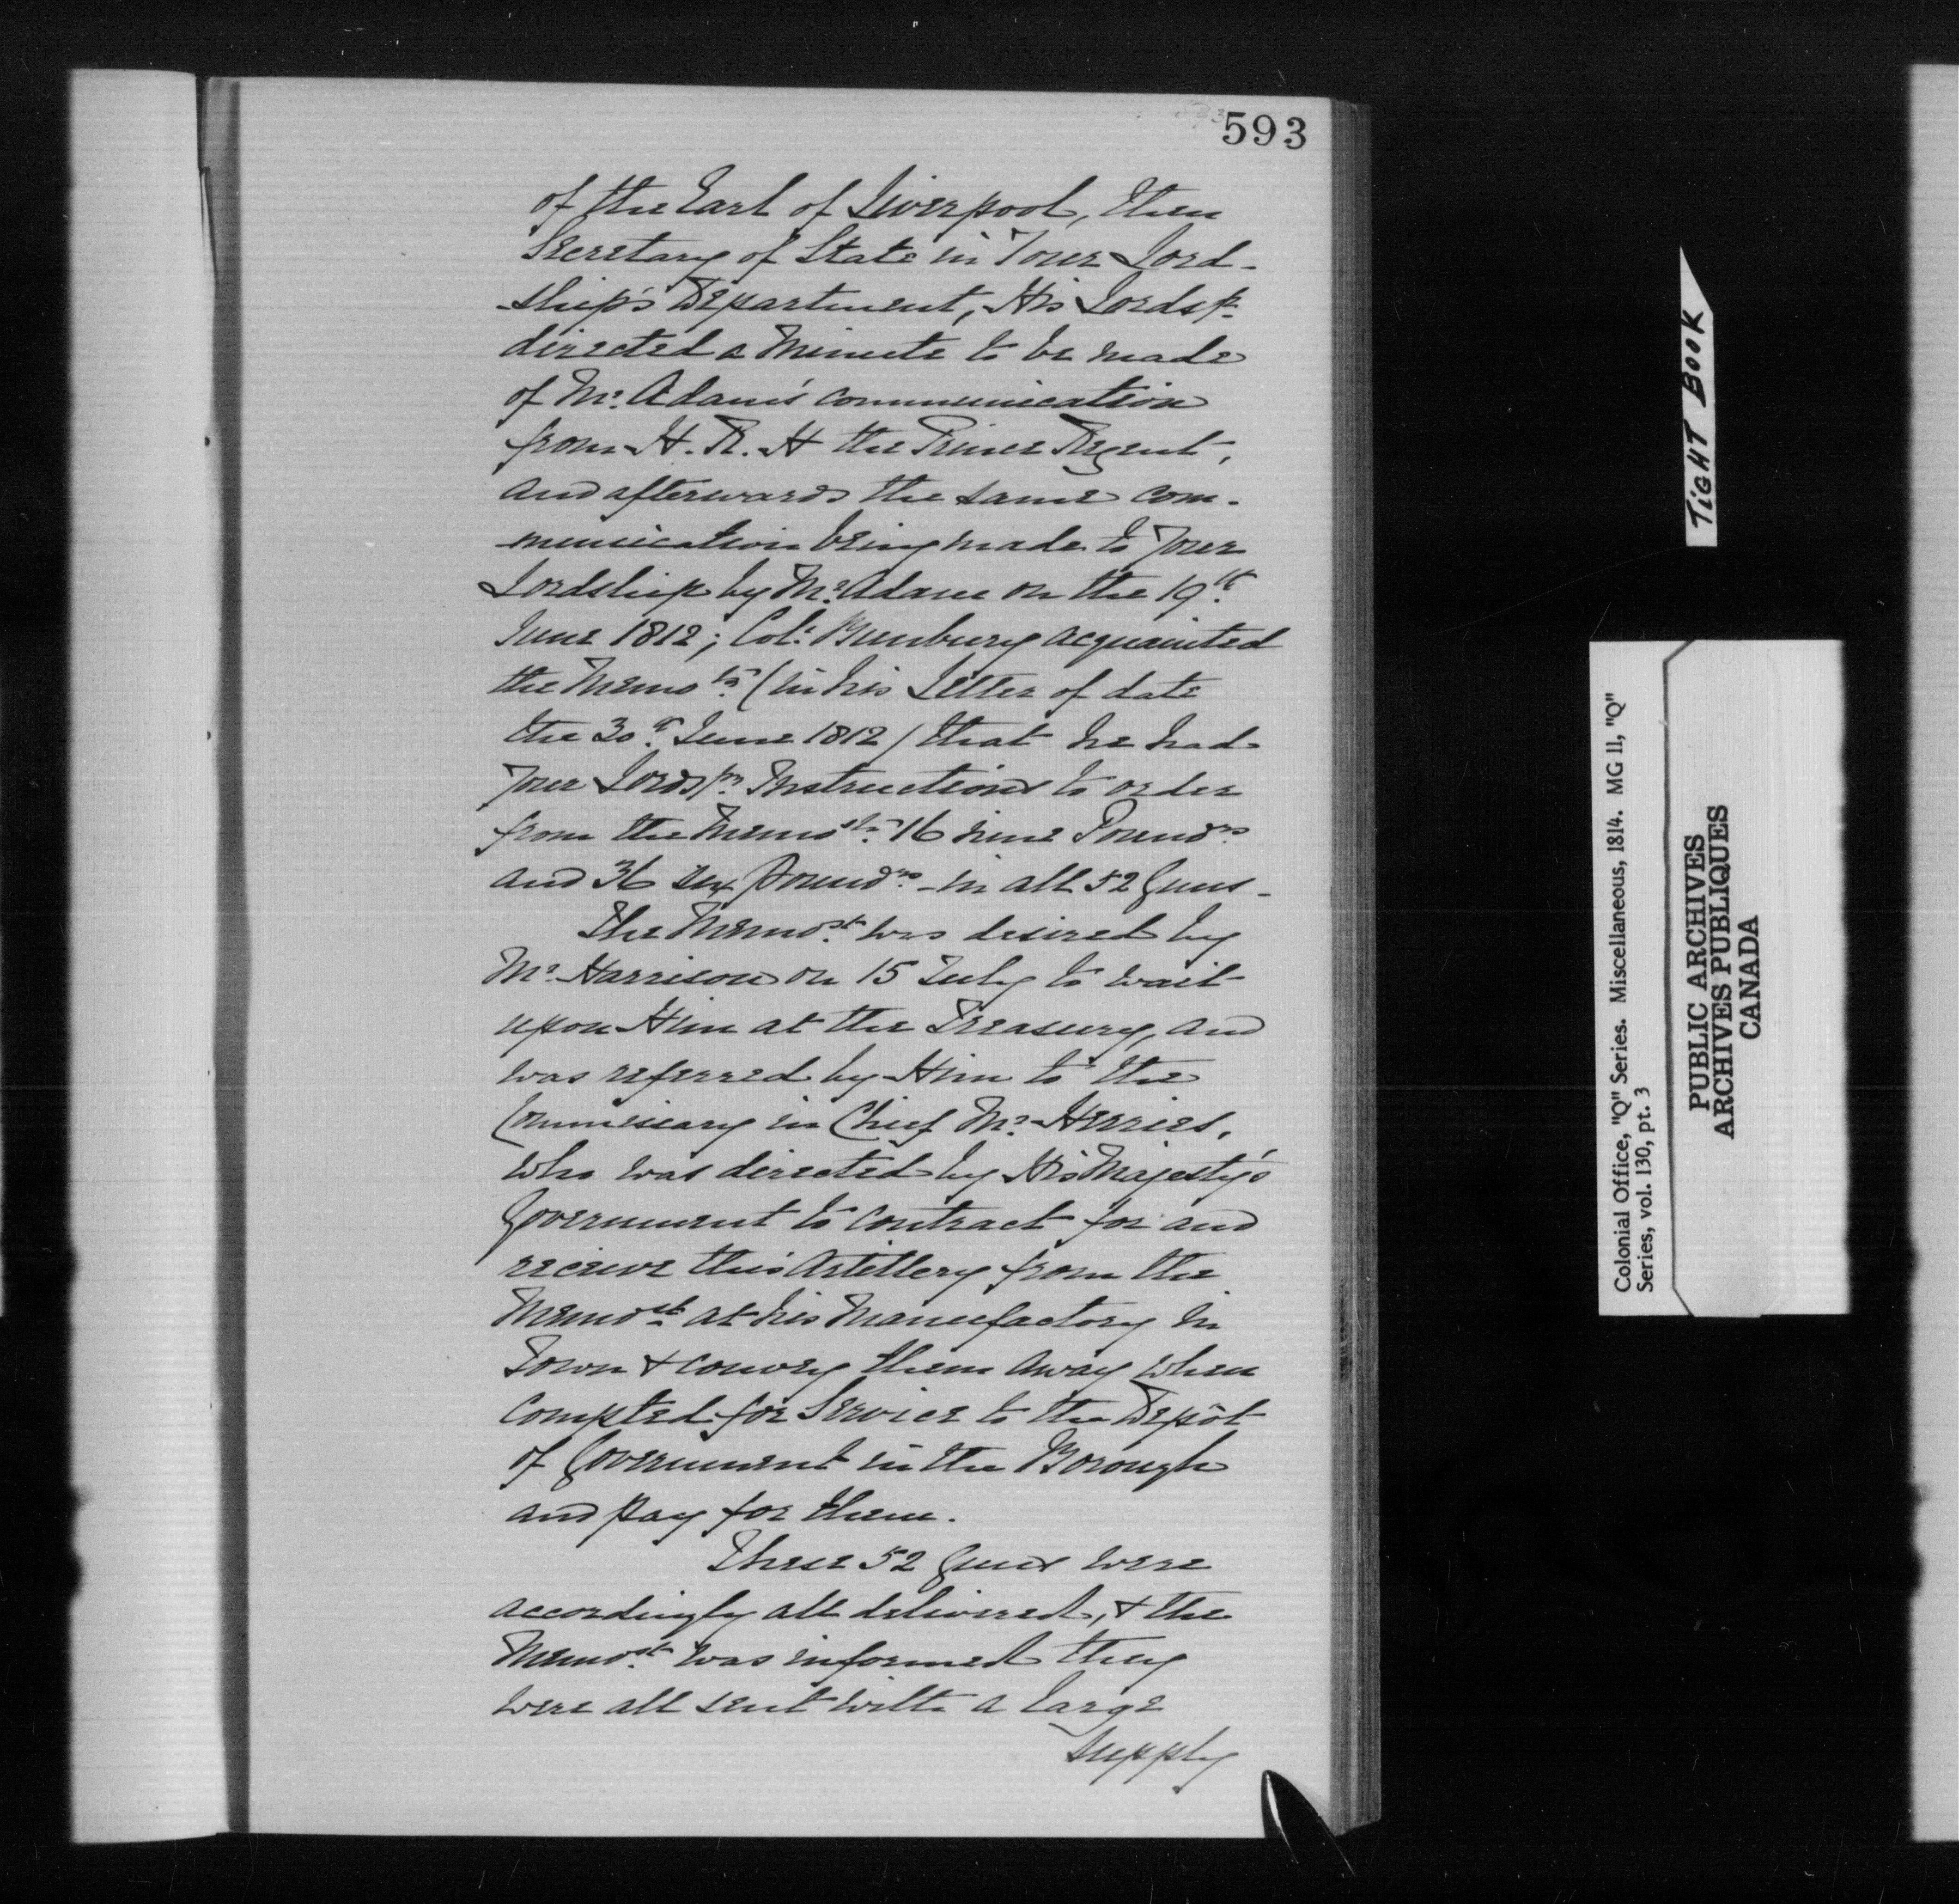 593
of the Earl of Liverpool, then
Secretary of State in Your Lord-
-ship's Department, His Lordsp.
directed a Minute to be made
of Mr. Adam's communication
from H. R. H the Prince Regent,
and afterwards the same com-
-munication being made to Your
Lordship by Mr. Adam on the 19th.
June 1812; Col: Bunbury acquainted
the Memost. (in his Letter of date
the 30th. June 1812) that he had
Your Lordsps. Instructions to order
from the Memost. 16 nine Pounds.
and 36 six pounds. - in all 52 Guns -
The Memost. was desired by
Mr. Harrison on 15 July to wait
upon Him at the Treasury, and
was referred by Him to the
Commissary in Chief Mr. Herries,
who was directed by His Majesty's
Government to contract for and
receive this Artillery from the
Memost. at his Manufactory in
Town & convey them away when
compted for Service to the Depôt
of Government in the Borough
and pay for them.
These 52 Guns were
accordingly all delivered, & the
Memost. was informed they
were all sent with a large
supply
TIGHT BOOK
Colonial Office, "Q" Series. Miscellaneous, 1814. MG 11, "Q"
Series, vol. 130, pt. 3
PUBLIC ARCHIVES
ARCHIVES PUBLIQUES
CANADA